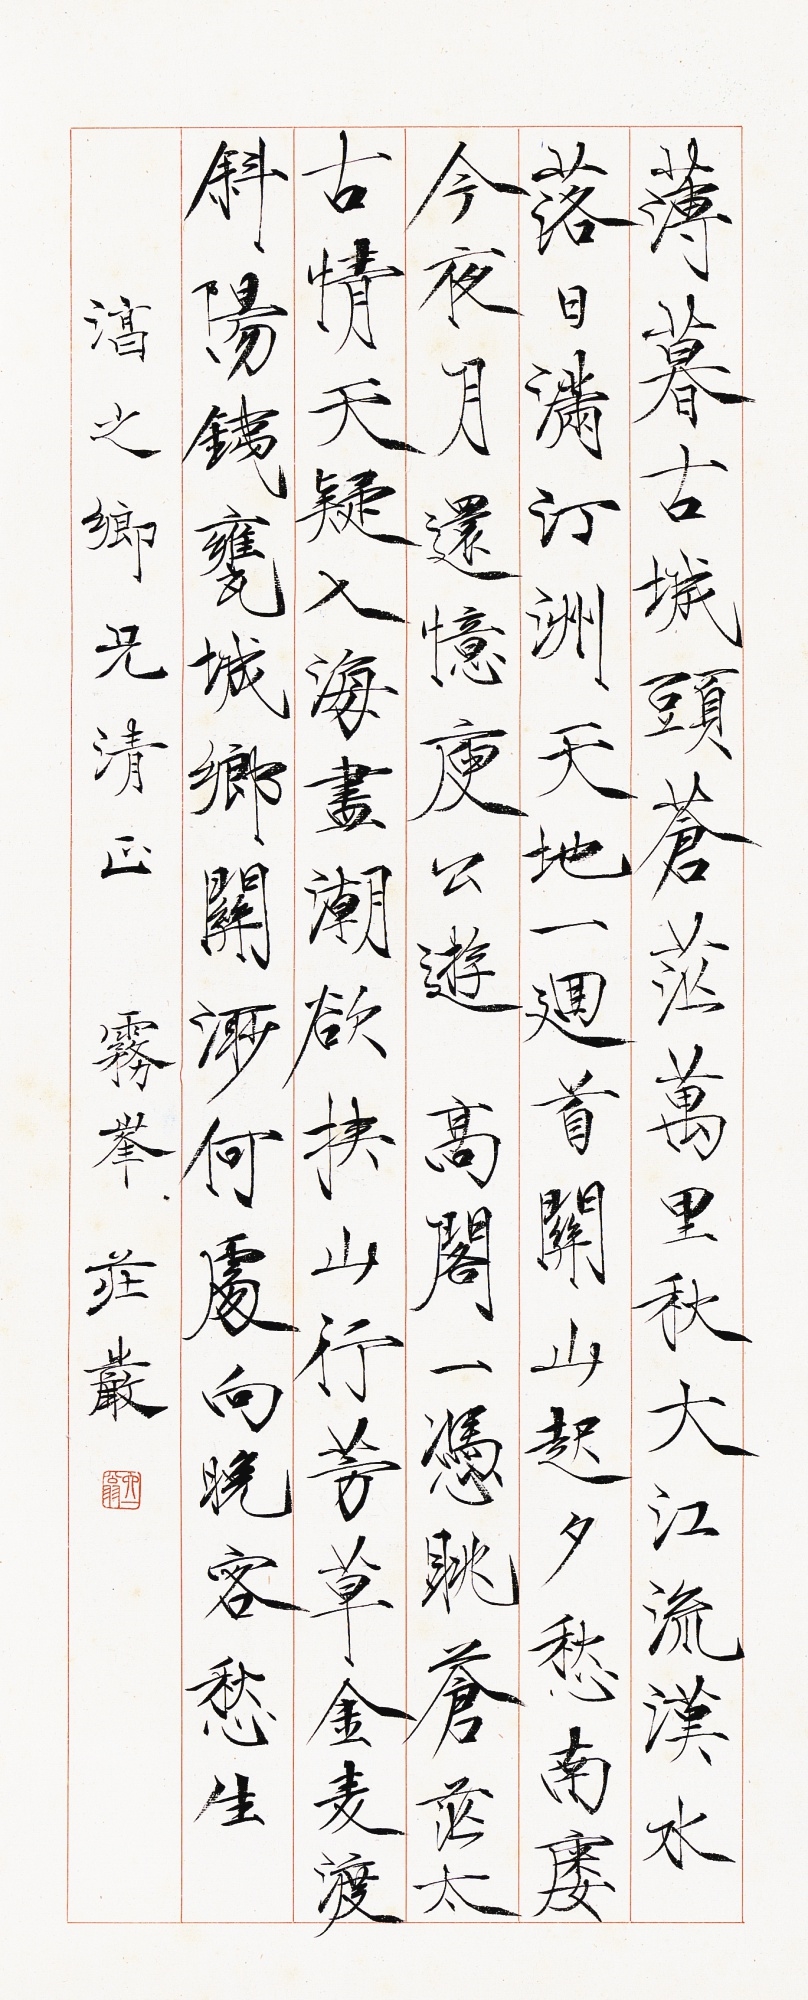 薄暮古城頭蒼茫萬里秋大江流漢水
落日滿汀洲天地一迴首關山起夕愁南廔
今夜月還憶庾公遊 高閣一憑眺蒼茫太
古情天疑入海盡潮欲挾山行芳草金麦渡
斜陽鐵甕城鄉關渺何處向晚客愁生
湻之鄉兄清正 霧峯 莊嚴
六一翁